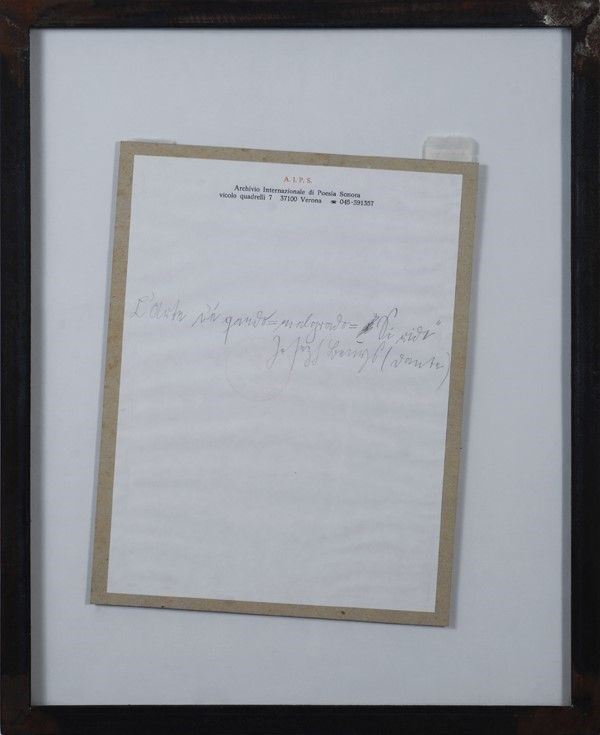 A. I. P. S.
Archivio Internazionale di Poesia Sonora
vicolo quadrelli 7 37100 Verona ☎ 045-591357
L'Arte quando = malgrado = "Si ride"
Joseph Beuys (dante)